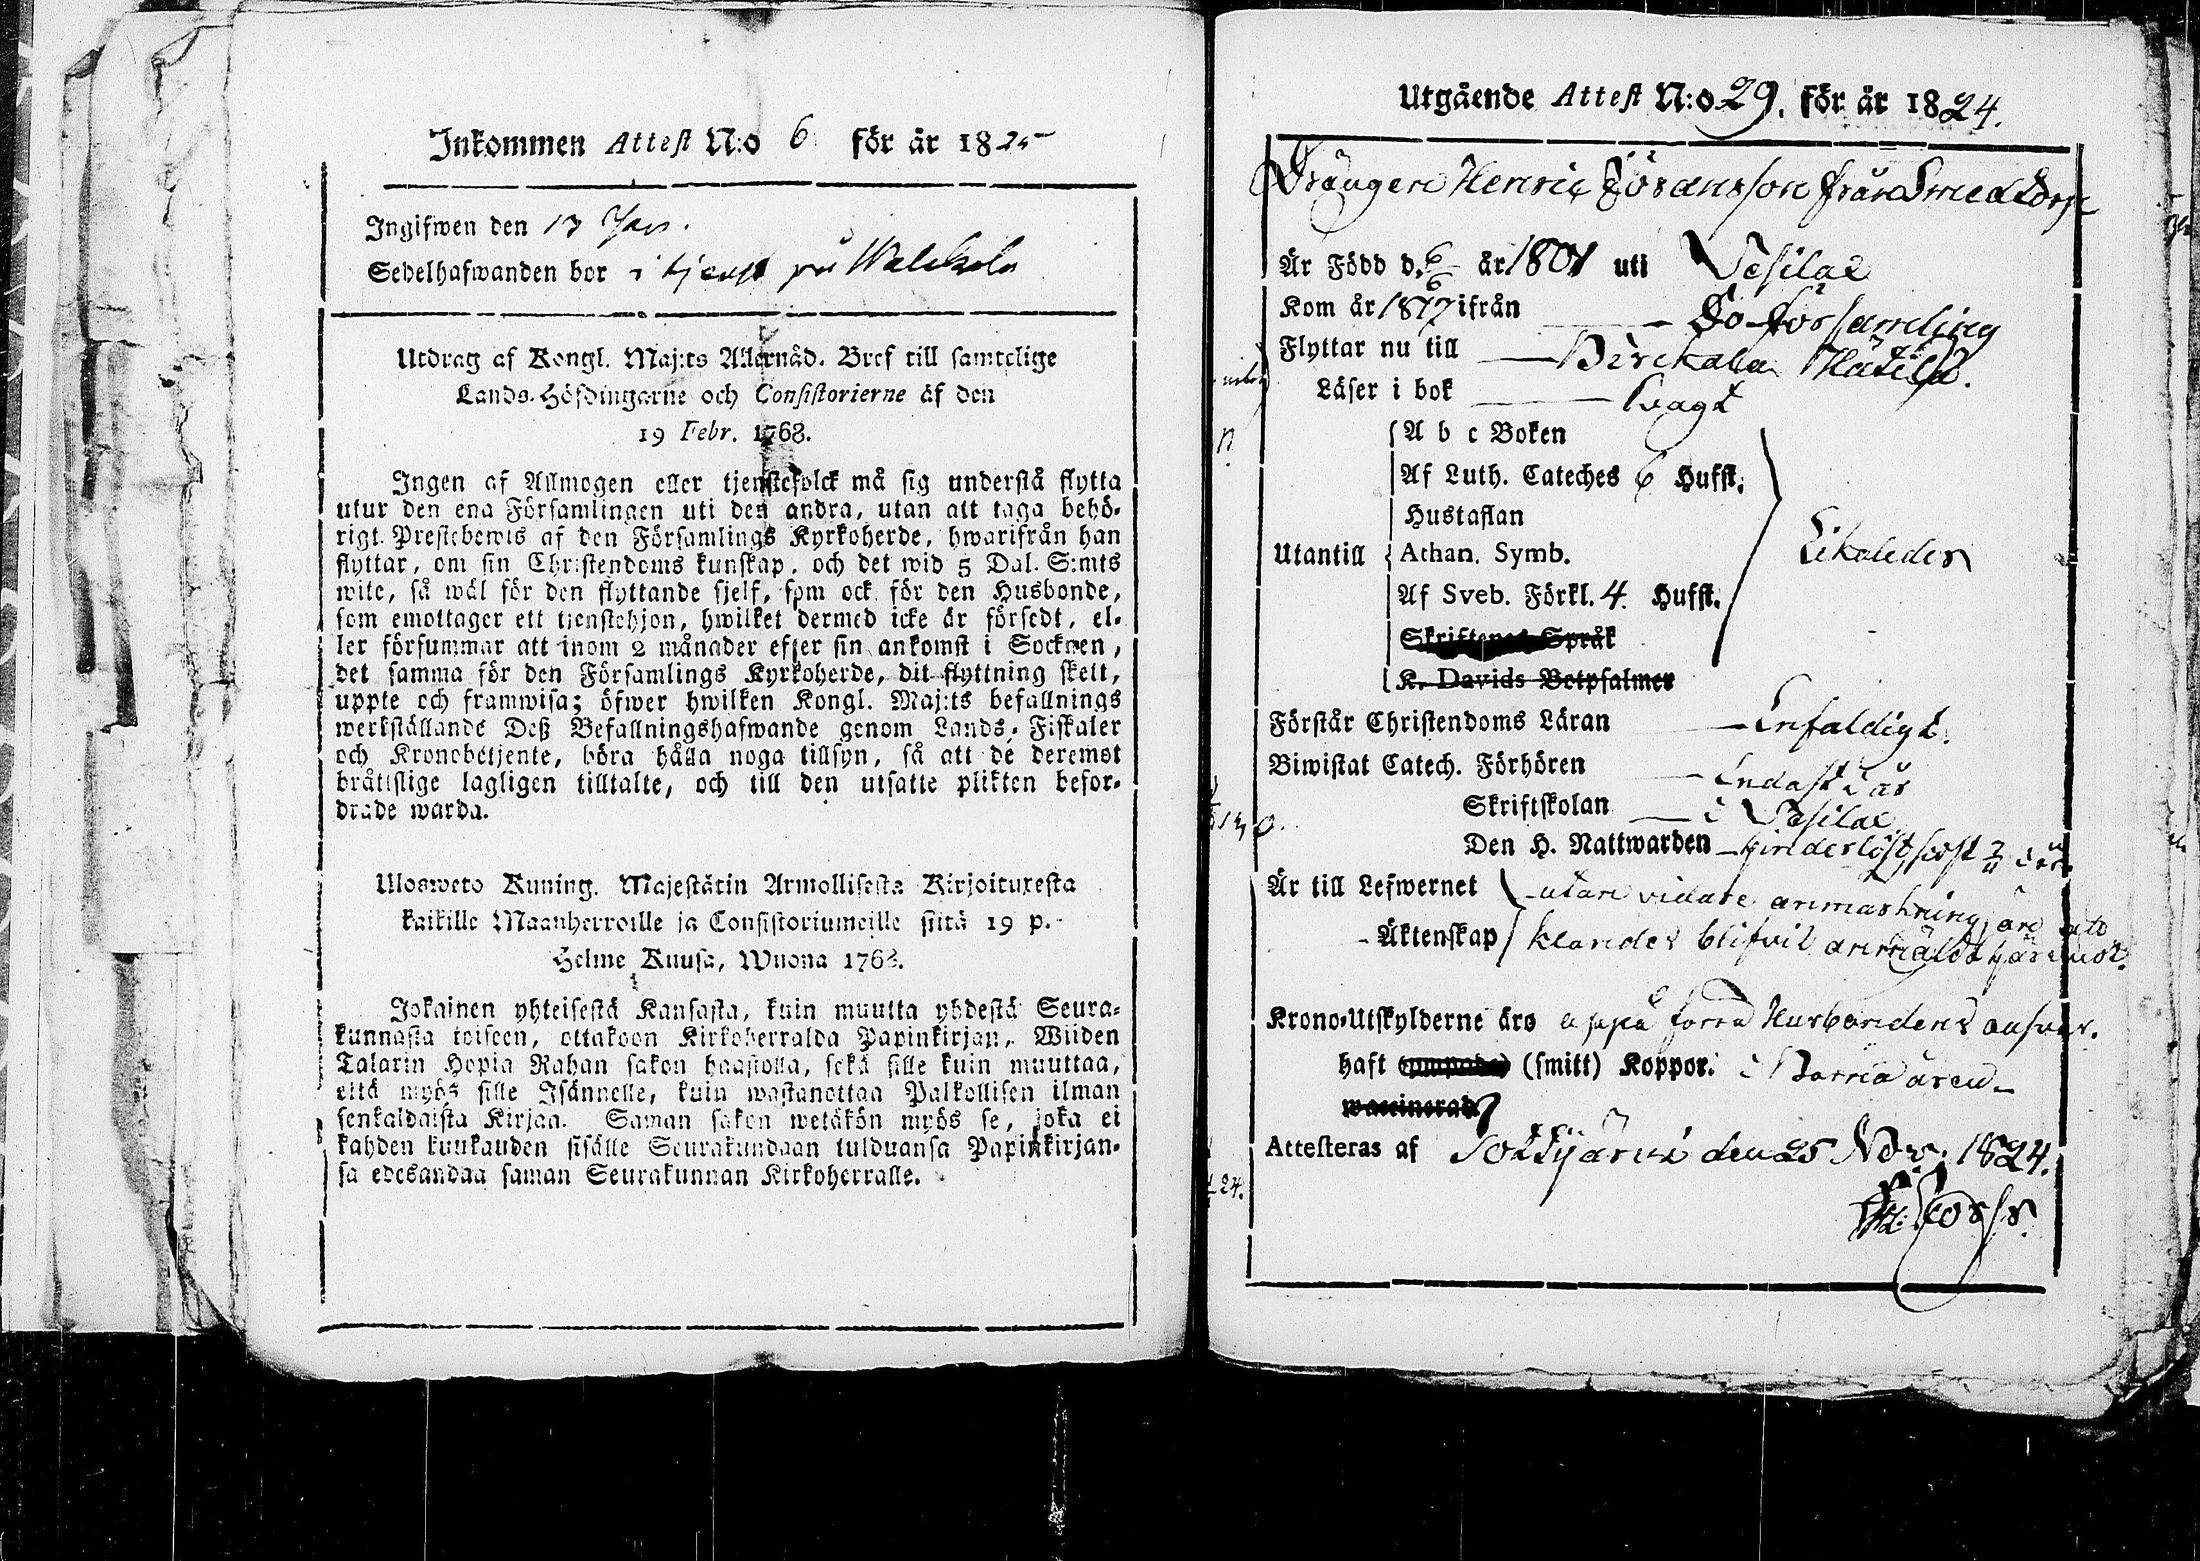 Inkommen Attest N:o 6 för år 1825
Ingifwen den 13 Jan.
Sedelhafwanden bor i tjenst på Walckala
Utdrag af Kongl. Maj:ts Allernåd. Bref till samtelige
Lands-Höfdingarne och Consistorierne af den
19 Febr. 1768.
Ingen af Allmogen eller tjenstefolck må sig understå flytta
utur den ena Församlingen uti den andra, utan att taga behö-
rigt Prestebewis af den Församlings Kyrkoherde, hwarifrån han
flyttar, om sin Christendoms kunskap, och det wid 5 Dal. S:mts
wite, så wäl för den flyttande sjelf, som ock för den Husbonde,
som emottager ett tjenstehjon, hwilket dermed icke är försedt, el-
ler försummar att inom 2 månader efter sin ankomst i Socknen,
det samma för den Församlings Kyrkoherde, dit flyttning skett,
uppte och framwisa; öfwer hwilken Kongl. Maj:ts befallnings
werkställande Deß Befallningshafwande genom Lands-Fiskaler
och Kronobetjente, böra hålla noga tillsyn, så att de deremot
bråttslige lagligen tilltalte, och till den utsatte plikten befor-
drade warda.
Ulosweto Kuning. Majestätin Armollisesta Kirjoituxesta
kaikille Maanherroille ja Consistoriumeille siitä 19 p.
Helme Kuusa, Wuona 1768.
Jokainen yhteisestä Kansasta, kuin muutta yhdestä Seura-
kunnasta toiseen, ottakoon Kirkoherralda Papinkirjan, Wiiden
Talarin Hopia Rahan sakon haastolla, sekä sille kuin muuttaa,
että myös sille Isännelle, kuin wastanottaa Palkollisen ilman
senkaldaista Kirjaa. Saman sakon wetäkön myös se, joka ei
kahden kuukauden sisälle Seurakundaan tulduansa Papinkirjan-
sa edesandaa saman Seurakunnan Kirkoherralle.
Utgående Attest N:o 29. för år 1824.
Drängen Henric Jöransson från Smedtorp
Är Född d. 6 år 1801 uti Vesilax
Kom år 1817 ifrån Do församling
Flyttar nu till Birckala
Läser i bok Svagt
A b c Boken
Af Luth. Cateches 6 Hufst.
Hustaflan
Utantill Athan. Symb. Likaledes
Af Sveb. Förkl. 4. Hufst.
Skriftenes Språk
K. Davids Botpsalmer
Förstår Christendoms Läran Enfaldigt.
Biwistat Catech. Förhören Endast i år
Skriftskolan i Vesilax
Den H. Nattwarden hinderlöst, sidst
Är till Lefwernet utan vidare anmärkning, än
Äktenskap klander blifvit anmäldt häremot.
Krono-Utskylderne äro uppå förra Husbondens answar.
haft (smitt) Koppor. i Barna åren
waccinerad
Attesteras af Sottijärvi den 25 Nov. 1824.